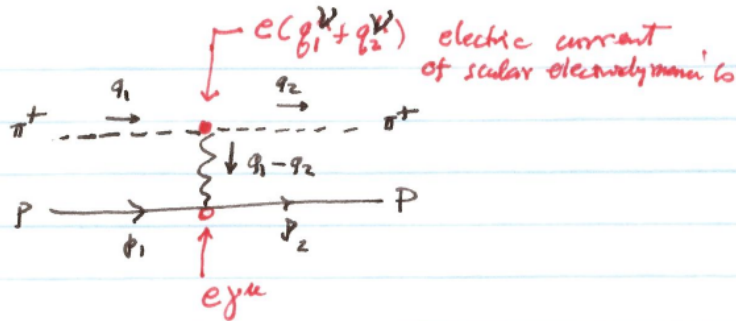 e(q₁^ν + q₂^ν) electric current
of scalar electrodynamics
q₁ q₂
π⁺ π⁺
↓ q₁ - q₂
P P
p₁ p₂
eγ^μ